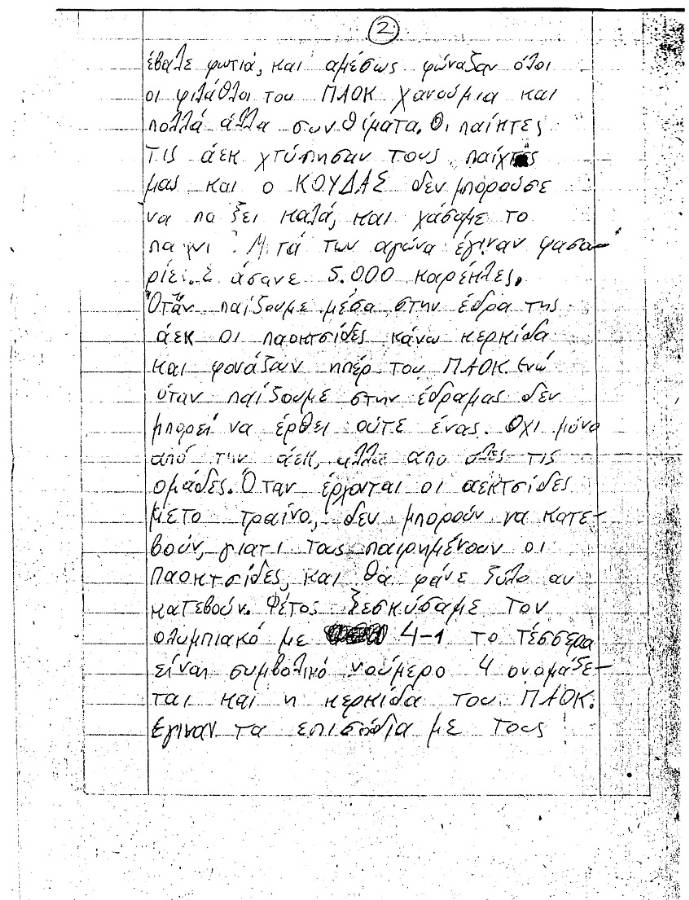 2
έβαλε φωτιά, και αμέσως φώναξαν όλοι
οι φιλάθλοι του ΠΑΟΚ χανούμια και
πολλά άλλα συνθίματα. Οι παίκτες
τις άεκ χτύπησαν τους παίχτες
μας και ο ΚΟΥΔΑΣ δεν μπορούσε
να πα ξει καλά, και χάσαμε το
Μ τά των αγώνα έγιναν φασα-
ρίες. άσανε 5.000 καρέκλες.
Όταν παίζουμε μέσα στην έδρα της
άεκ οι παοκτσίδες κάνω κερκίδα
και φονάζουν ηπέρ του ΠΑΟΚ. Ενώ
όταν παίζουμε στην έδραμας δεν
μπορεί να έρθει ούτε ένας. Όχι μόνο
από την άεκ, αλλά απο όλες τις
ομάδες. Όταν έρχονται οι αεκτσίδες
μετο τραίνο, δεν μπορούν να κατε-
βούν, γιατι τους παιρημένουν οι
Παοκτσίδες, και θα φάνε ξύλο αν
κατεβούν. Φέτος ξεσκύσαμε τον
ολυμπιακό με 4-1 το τέσσερα
είναι συμβολικό νούμερο 4 ονομάζε-
ται και η κερκίδα του ΠΑΟΚ.
Έγιναν τα επισόδια με τους